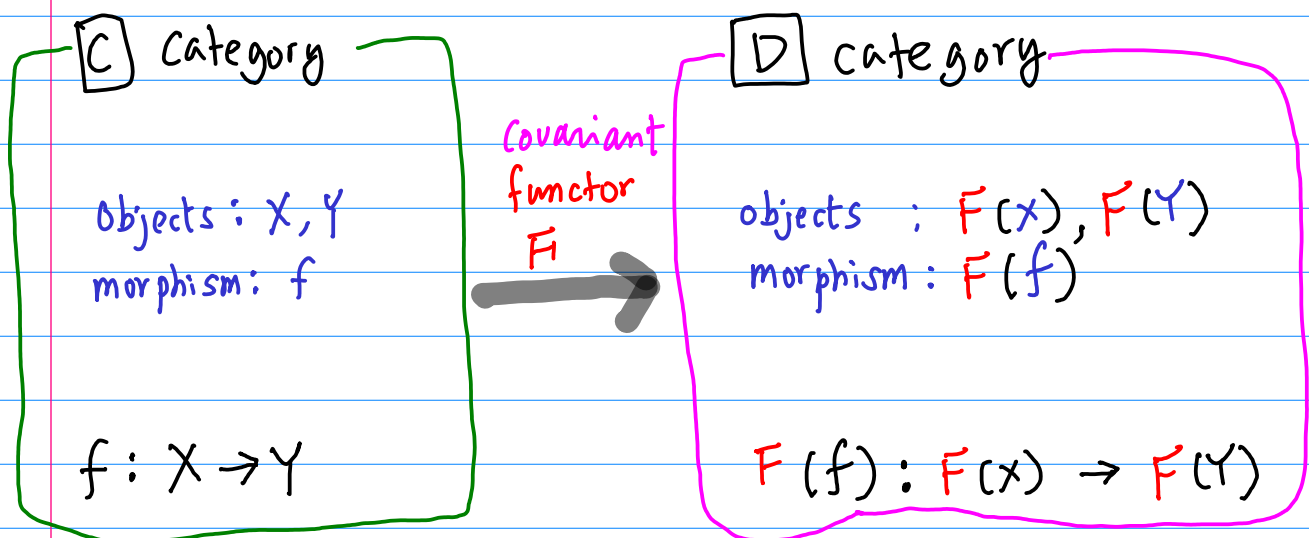 C Category
objects : X, Y
morphism: f
f : X → Y
covariant
functor
F
D category
objects : F(X), F(Y)
morphism : F(f)
F(f) : F(X) → F(Y)